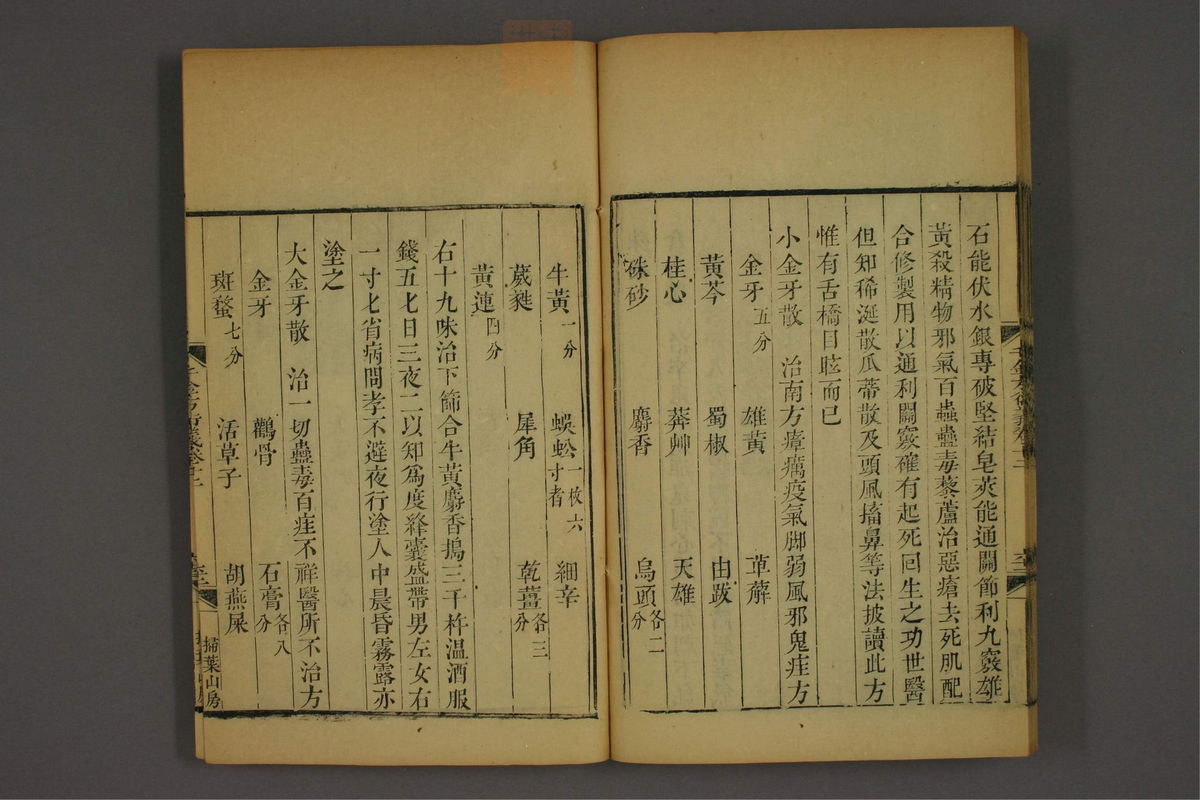 石能伏水銀專破堅結皂莢能通關節利九竅雄
黃殺精物邪氣百蟲蠱毒藜蘆治惡瘡去死肌配
合修製用以通利關竅確有起死回生之功世醫
但知稀涎散瓜蒂散及頭風搐鼻等法披讀此方
惟有舌橋目眩而已
小金牙散 治南方瘴癘疫氣脚弱風邪鬼疰方
金牙五分 雄黃 萆薢
黃芩 蜀椒 由跋
桂心 莽艸 天雄
硃砂 麝香 烏頭各二分
牛黃一分 蜈蚣一枚六寸者 細辛
葳蕤 犀角 乾薑各三分
黃連四分
右十九味治下篩合牛黃麝香搗三千杵温酒服
錢五七日三夜二以知爲度絳囊盛帶男左女右
一寸七省病問孝不避夜行塗人中晨昏霧露亦
塗之
大金牙散 治一切蠱毒百疰不祥醫所不治方
金牙 鸛骨 石膏各八分
斑蝥七分 活草子 胡燕屎
掃葉山房